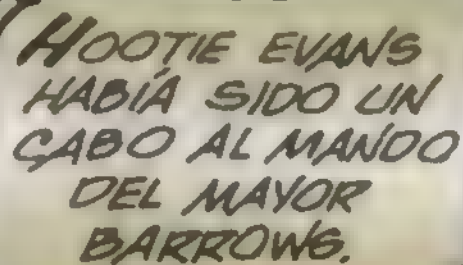 HOOTIE EVANS
HABÍA SIDO UN
CABO AL MANDO
DEL MAYOR
BARROWS.